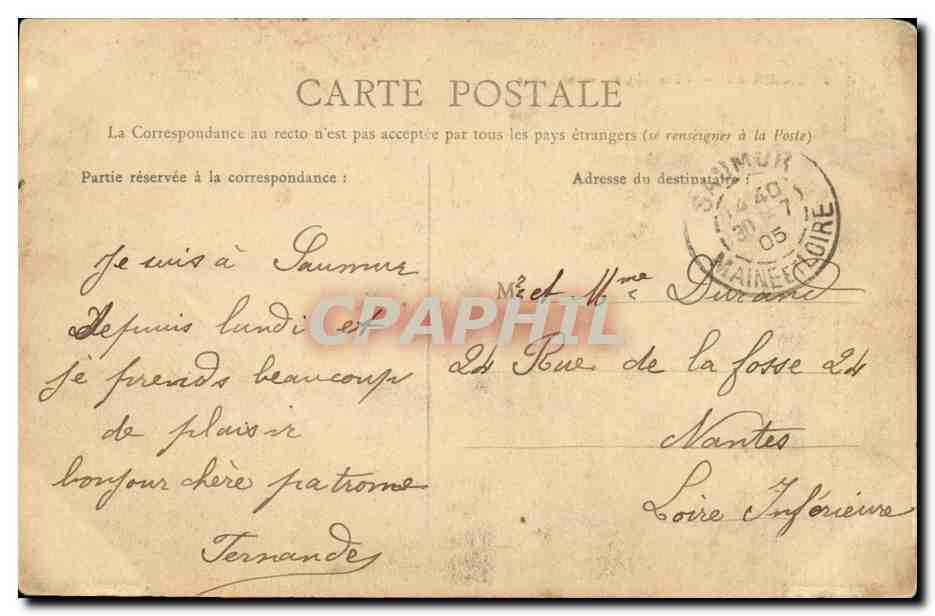 CARTE POSTALE
La Correspondance au recto n'est pas acceptée par tous les pays étrangers (se renseigner à la Poste)
Partie réservée à la correspondance :
Adresse du destinataire :
SAUMUR
4 40
30 7
05
MAINE ET LOIRE
Je suis à Saumur
depuis lundi et
je prends beaucoup
de plaisir
bonjour chère patrone
Fernande
Mr et Mme Durand
24 Rue de la fosse 24
Nantes
Loire Inférieure
CPAPHIL